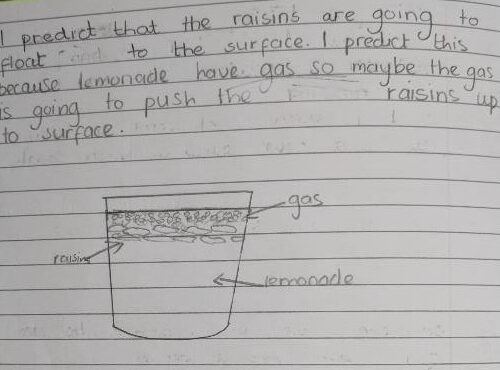 I predict that the raisins are going to
float to the surface. I predict this
because lemonade have gas so maybe the gas
is going to push the raisins up
to surface.
gas
raisins
lemonade